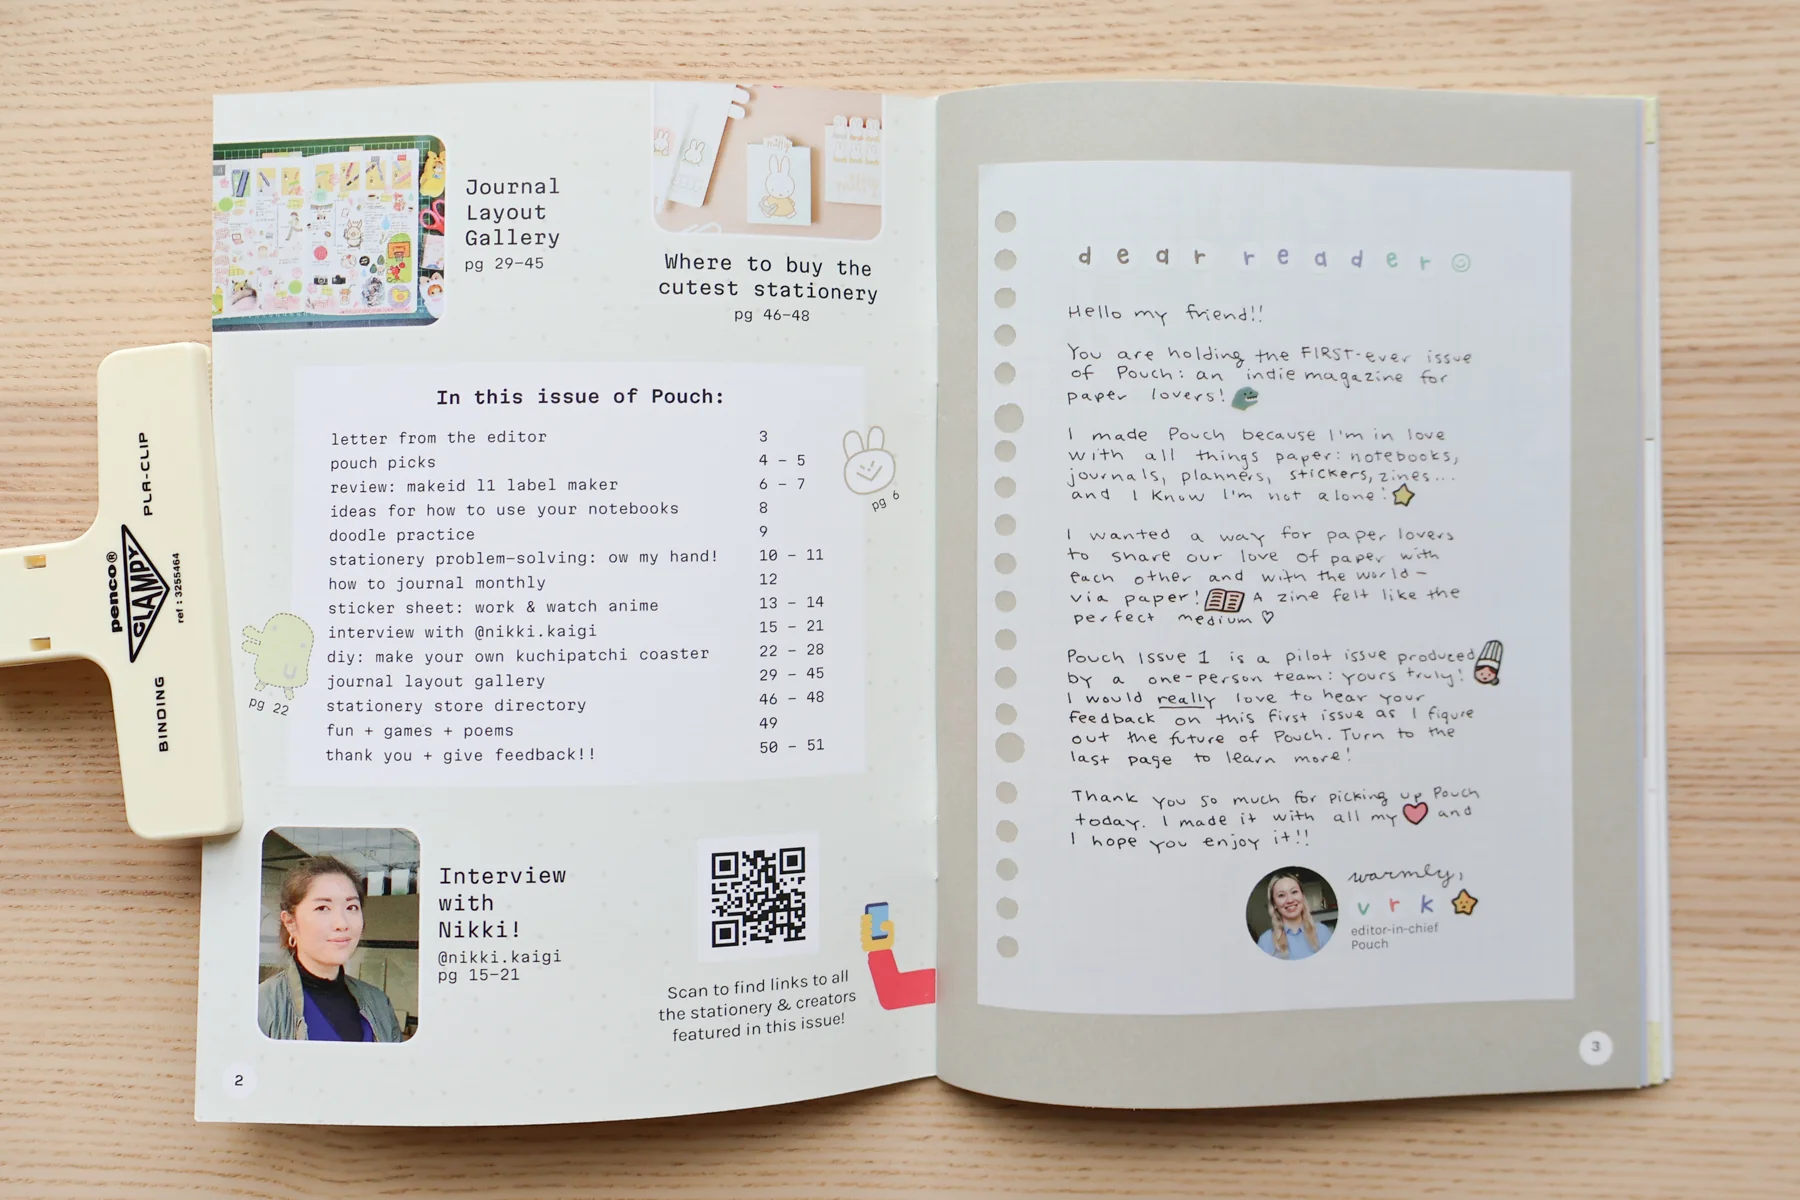 Journal
Layout
Gallery
pg 29-45
miffy
Where to buy the
cutest stationery
pg 46-48
In this issue of Pouch:
letter from the editor 3
pouch picks 4 - 5
review: makeid l1 label maker 6 - 7
ideas for how to use your notebooks 8
doodle practice 9
stationery problem-solving: ow my hand! 10 - 11
how to journal monthly 12
sticker sheet: work & watch anime 13 - 14
interview with @nikki.kaigi 15 - 21
diy: make your own kuchipatchi coaster 22 - 28
journal layout gallery 29 - 45
stationery store directory 46 - 48
fun + games + poems 49
thank you + give feedback!! 50 - 51
pg 6
pg 22
Interview
with
Nikki!
@nikki.kaigi
pg 15-21
Scan to find links to all
the stationery & creators
featured in this issue!
2
penco®
CLAMPY
ref : 3255464
PLA-CLIP
BINDING
dear reader
Hello my friend!!
You are holding the FIRST-ever issue
of Pouch: an indie magazine for
paper lovers!
I made Pouch because I'm in love
with all things paper: notebooks,
journals, planners, stickers, zines...
and I know I'm not alone!
I wanted a way for paper lovers
to share our love of paper with
each other and with the world-
via paper! A zine felt like the
perfect medium ♡
Pouch Issue 1 is a pilot issue produced
by a one-person team: yours truly!
I would really love to hear your
feedback on this first issue as I figure
out the future of Pouch. Turn to the
last page to learn more!
Thank you so much for picking up Pouch
today. I made it with all my ❤ and
I hope you enjoy it!!
warmly,
vrk
editor-in-chief
Pouch
3